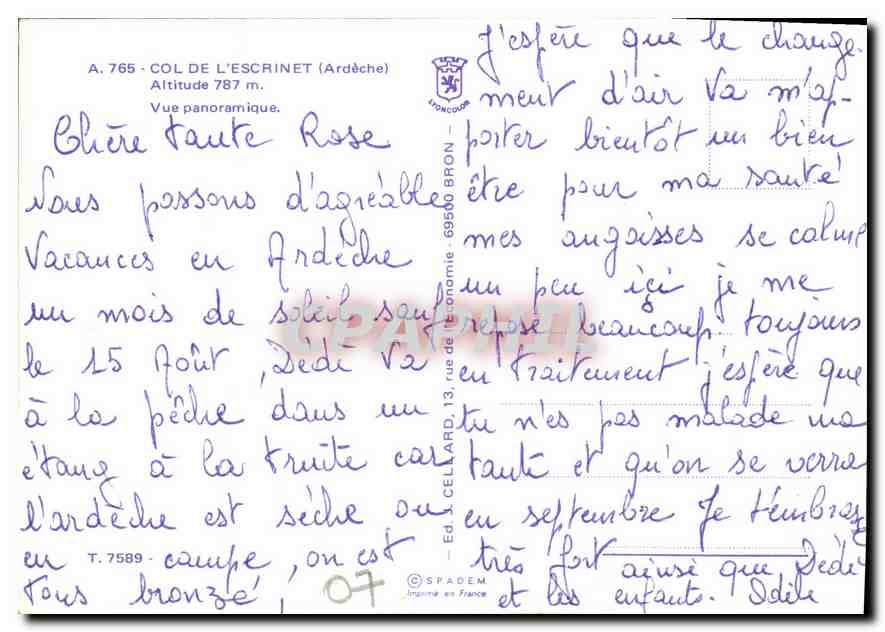 A. 765 - COL DE L'ESCRINET (Ardèche)
Altitude 787 m.
Vue panoramique.
Chère tante Rose
Nous passons d'agréable
Vacances en Ardèche
un mois de soleil sauf
le 15 Août, Dédé Va
à la pêche dans un
étang à la truite car
l'ardèche est sèche, on
en campe, on est
T. 7589 -
tous bronzé,
07
LYONCOLOR
Ed. J. CELLARD, 13, rue de l'Economie - 69500 BRON
© SPADEM
Imprimé en France
CPAPHIL
J'espère que le change-
ment d'air Va m'ap-
porter bientôt un bien
être pour ma santé
mes angoisses se calme
un peu içi je me
repose beaucoup. toujours
en traitement j'espère que
tu n'es pas malade ma
tante et qu'on se verra
en septembre Je t'embrasse
très fort ainsi que Dédé
et les enfants. Odile